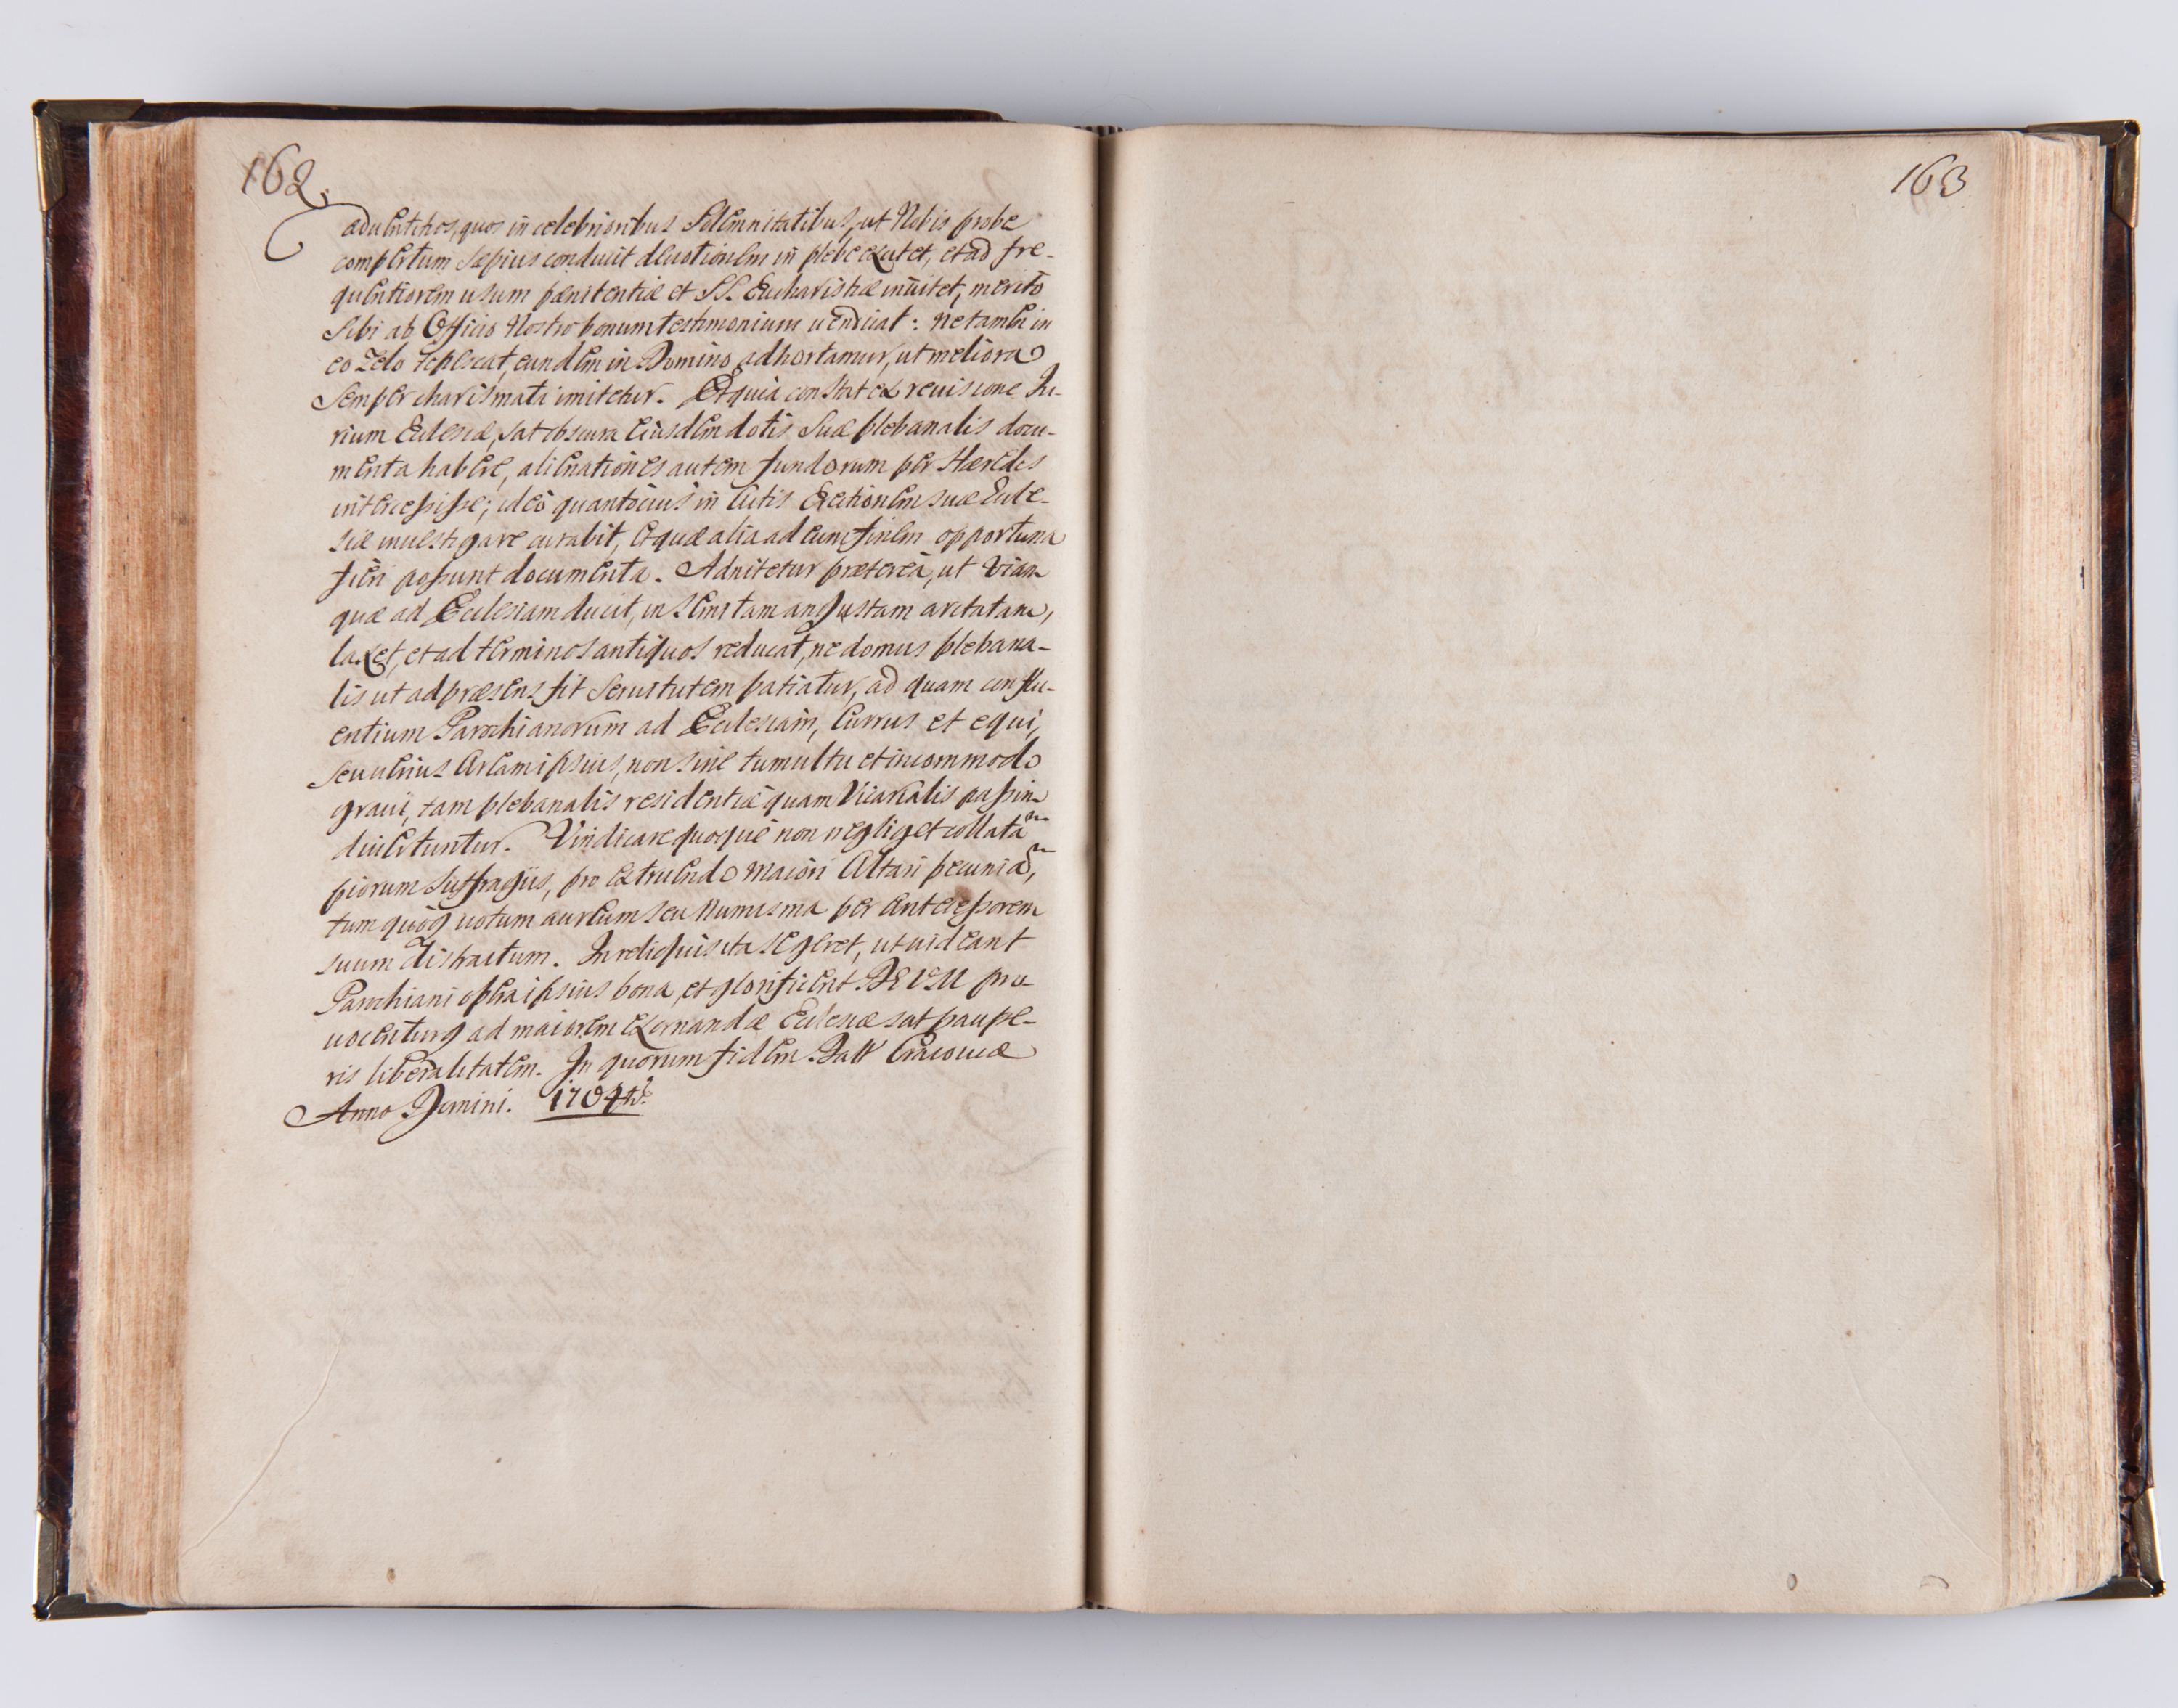 162.
aduentitios, quos in celebrioribus Solemnitatibus, ut Nobis probe
compertum sæpius conducit deuotionem in plebe excitet, et ad fre-
quentiorem usum pænitentiæ et SS. Eucharistiæ inuitet, meritò
Sibi ab Officio Nostro bonum testimonium uendicat: Ne tamen in
eo Zelo tepescat, eundem in Domino adhortamur, ut meliora
Semper charismata imitetur. Et quia constat ex reuisione Iu-
rium Ecclesiæ, sat obscura Eiusdem dotis Suæ plebanalis docu-
menta habere, alienationes autem fundorum per Hæredes
intercessisse; ideò quantocius in Actis Erectionem suæ Eccle-
siæ inuestigare curabit, et quæ alia ad eum finem opportuna
fieri possunt documenta. Adnitetur prætereà, ut viam
quæ ad Ecclesiam ducit, in semitam angustam arctatam,
laxet, et ad terminos antiquos reducat, ne domus plebana-
lis ut ad præsens fit Seruitutem patiatur, ad quam conflu-
entium Parochianorum ad Ecclesiam, Currus et equi,
seu uerius Aream ipsius, non sine tumultu et incommodo
graui, tam plebanalis residentiæ quam Vicarialis passim
diuertuntur. Vindicare quoque non negliget collatam
piorum Suffragijs, pro extruendo maiori Altari pecuniam,
tum quoq uotum aureum seu Numisma per Antecessorem
suum distractum. In reliquis ita se geret, ut uideant
Parochiani opera ipsius bona, et glorificent DEUM pro-
uocenturq ad maiorem exornandæ Ecclesiæ sat paupe-
ris liberalitatem. In quorum fidem Datt Cracouiæ
Anno Domini. 1704to
163